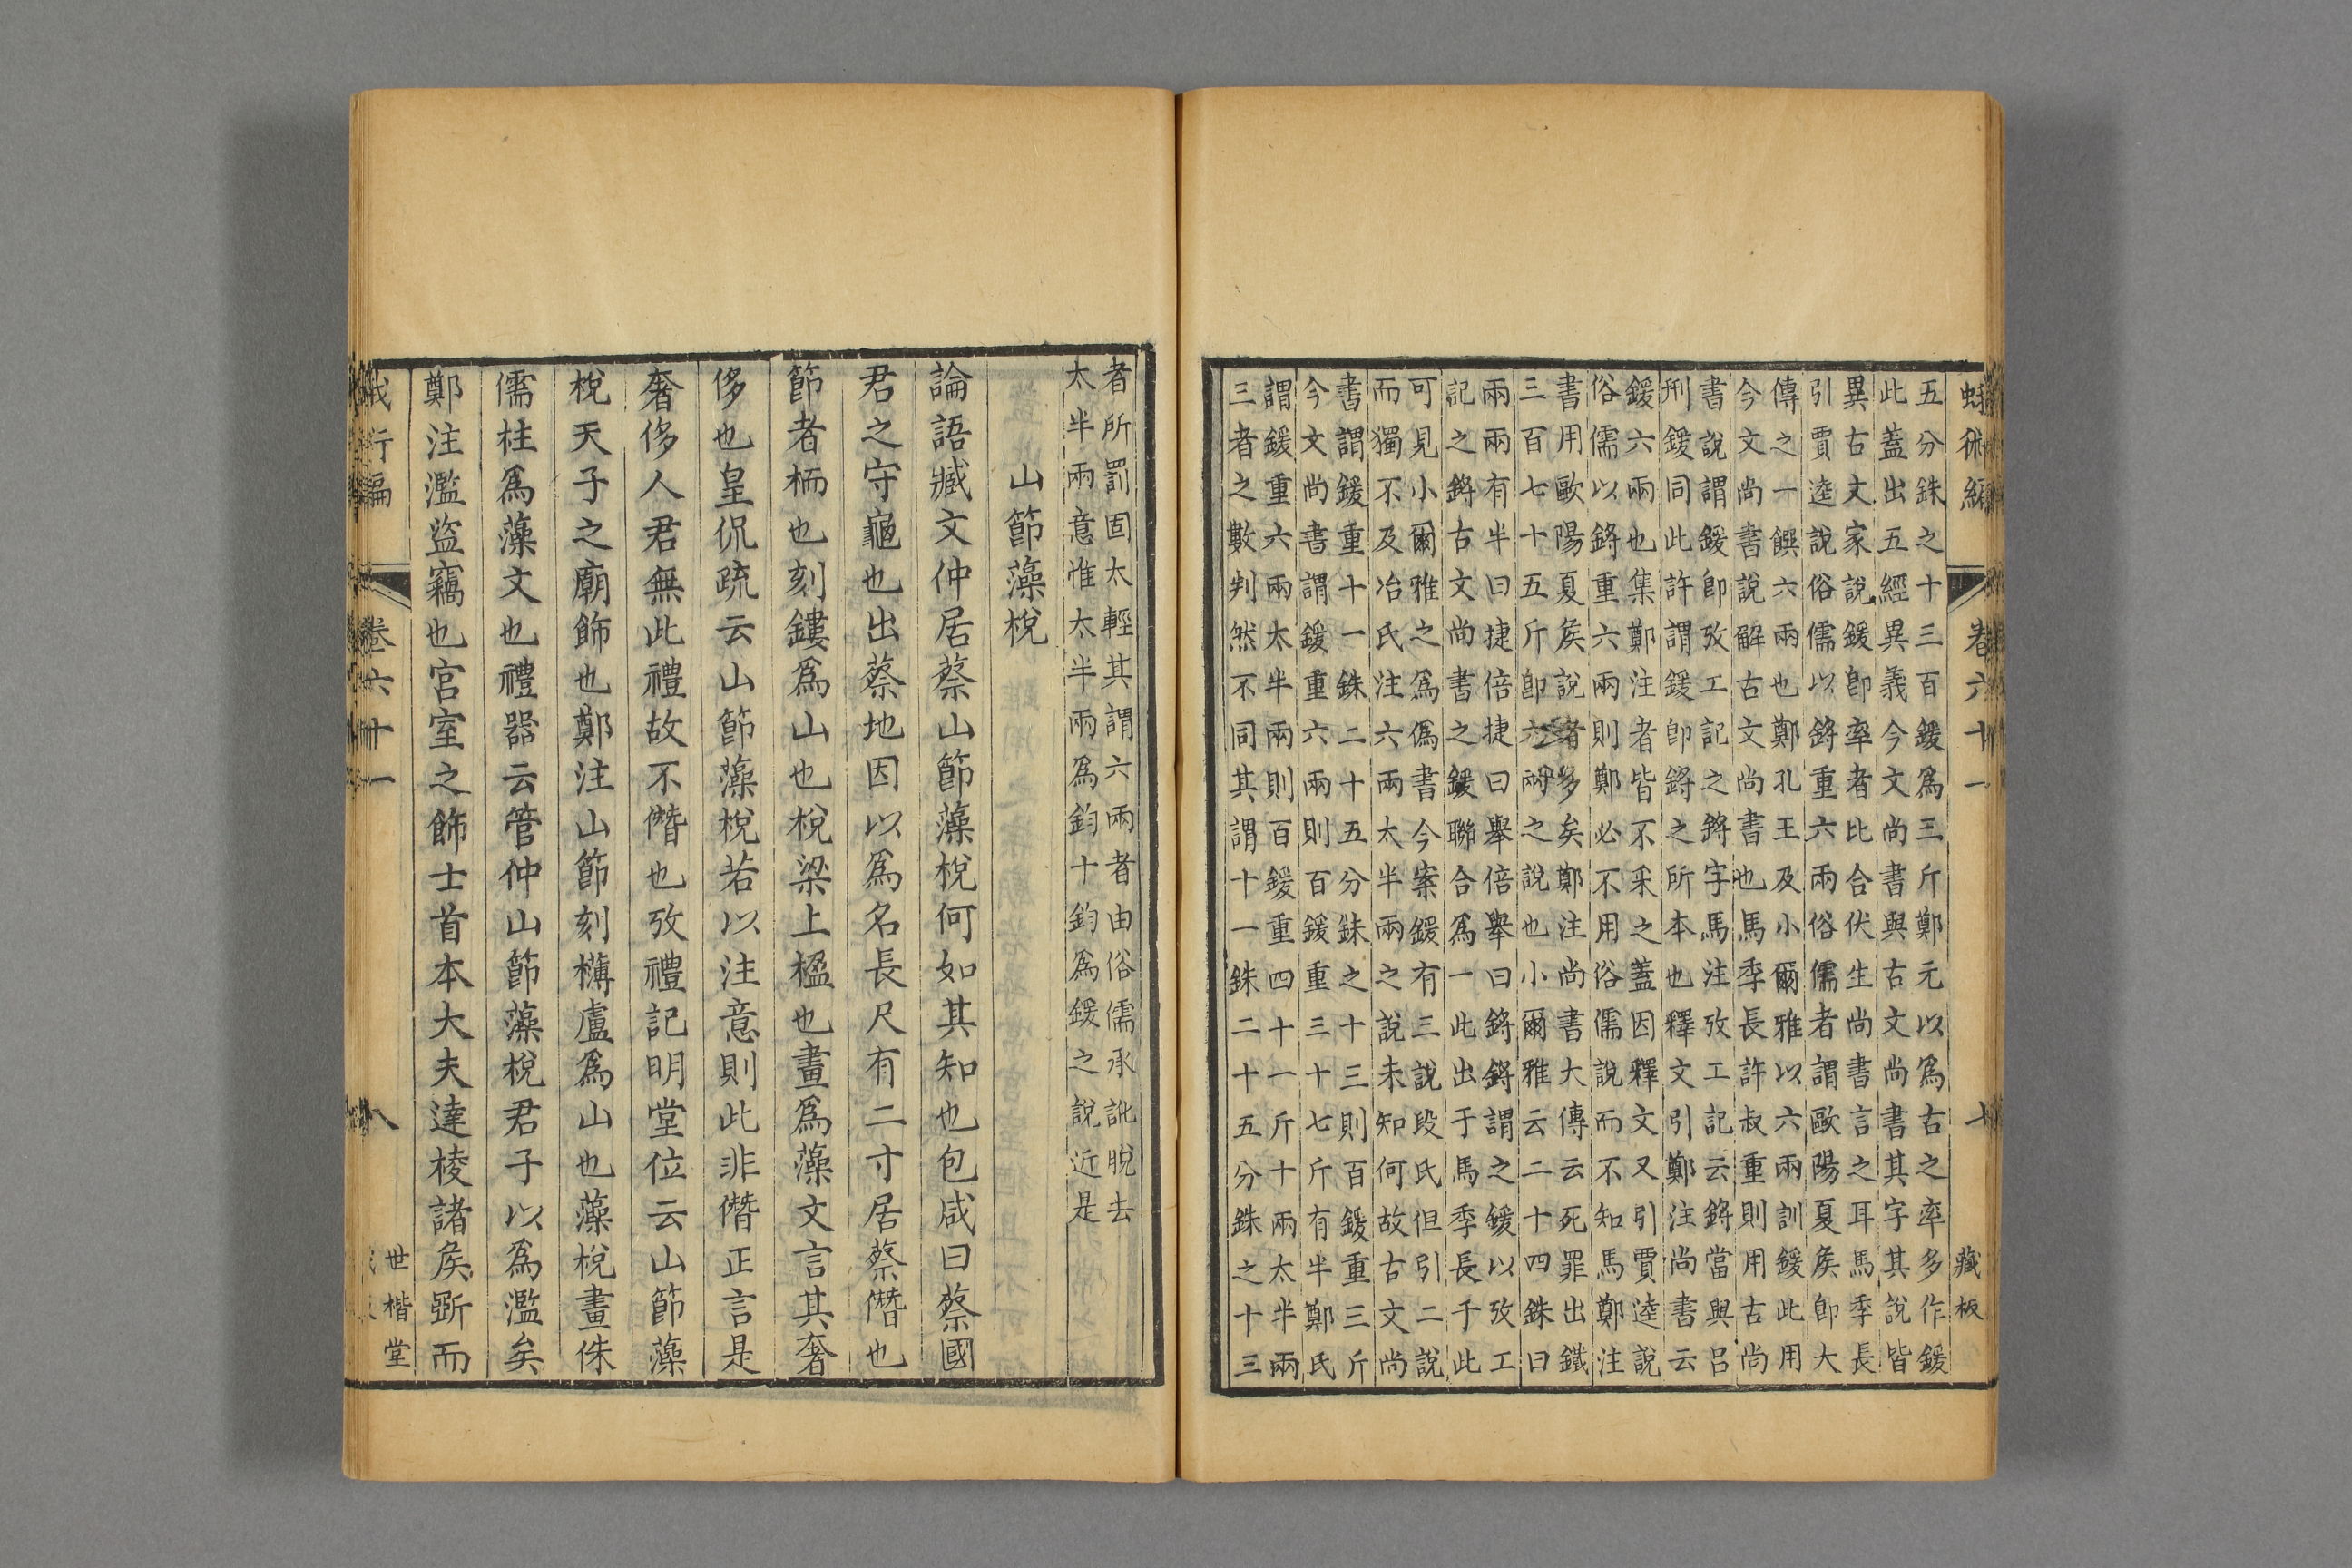 蛾術編 卷六十一 十 藏板
五分銖之十三百鍰爲三斤鄭元以爲古之率多作鍰
此蓋出五經異義今文尚書與古文尚書其字其說皆
異古文家說鍰卽率者比合伏生尚書言之耳馬季長
引賈逵說俗儒以鋝重六兩俗儒者謂歐陽夏矦卽大
傳之一饌六兩也鄭孔王及小爾雅以六兩訓鍰此用
今文尚書說解古文尚書也馬季長許叔重則用古尚
書說謂鍰卽攷工記之鋝字馬注攷工記云鋝當與呂
刑鍰同此許謂鍰卽鋝之所本也釋文引鄭注尚書云
鍰六兩也集鄭注者皆不采之蓋因釋文又引賈逵說
俗儒以鋝重六兩則鄭必不用俗儒說而不知馬鄭注
書用歐陽夏矦說者多矣鄭注尚書大傳云死罪出鐵
三百七十五斤卽六兩之說也小爾雅云二十四銖曰
兩兩有半曰捷倍捷曰舉倍舉曰鋝鋝謂之鍰以攷工
記之鋝古文尚書之鍰聯合爲一此出于馬季長于此
可見小爾雅之爲僞書今案鍰有三說段氏但引二說
而獨不及冶氏注六兩太半兩之說未知何故古文尚
書謂鍰重十一銖二十五分銖之十三則百鍰重三斤
今文尚書謂鍰重六兩則百鍰重三十七斤有半鄭氏
謂鍰重六兩太半兩則百鍰重四十一斤十兩太半兩
三者之數判然不同其謂十一銖二十五分銖之十三
者所罰固太輕其謂六兩者由俗儒承訛脫去
太半兩意惟太半兩爲鈞十鈞爲鍰之說近是
山節藻梲
論語臧文仲居蔡山節藻梲何如其知也包咸曰蔡國
君之守龜也出蔡地因以爲名長尺有二寸居蔡僭也
節者栭也刻鏤爲山也梲梁上楹也畫爲藻文言其奢
侈也皇侃疏云山節藻梲若以注意則此非僭正言是
奢侈人君無此禮故不僭也攷禮記明堂位云山節藻
梲天子之廟飾也鄭注山節刻欂盧爲山也藻梲畫侏
儒柱爲藻文也禮器云管仲山節藻梲君子以爲濫矣
鄭注濫盜竊也宮室之飾士首本大夫達棱諸矦斲而
術編 卷六十一 八 世楷堂